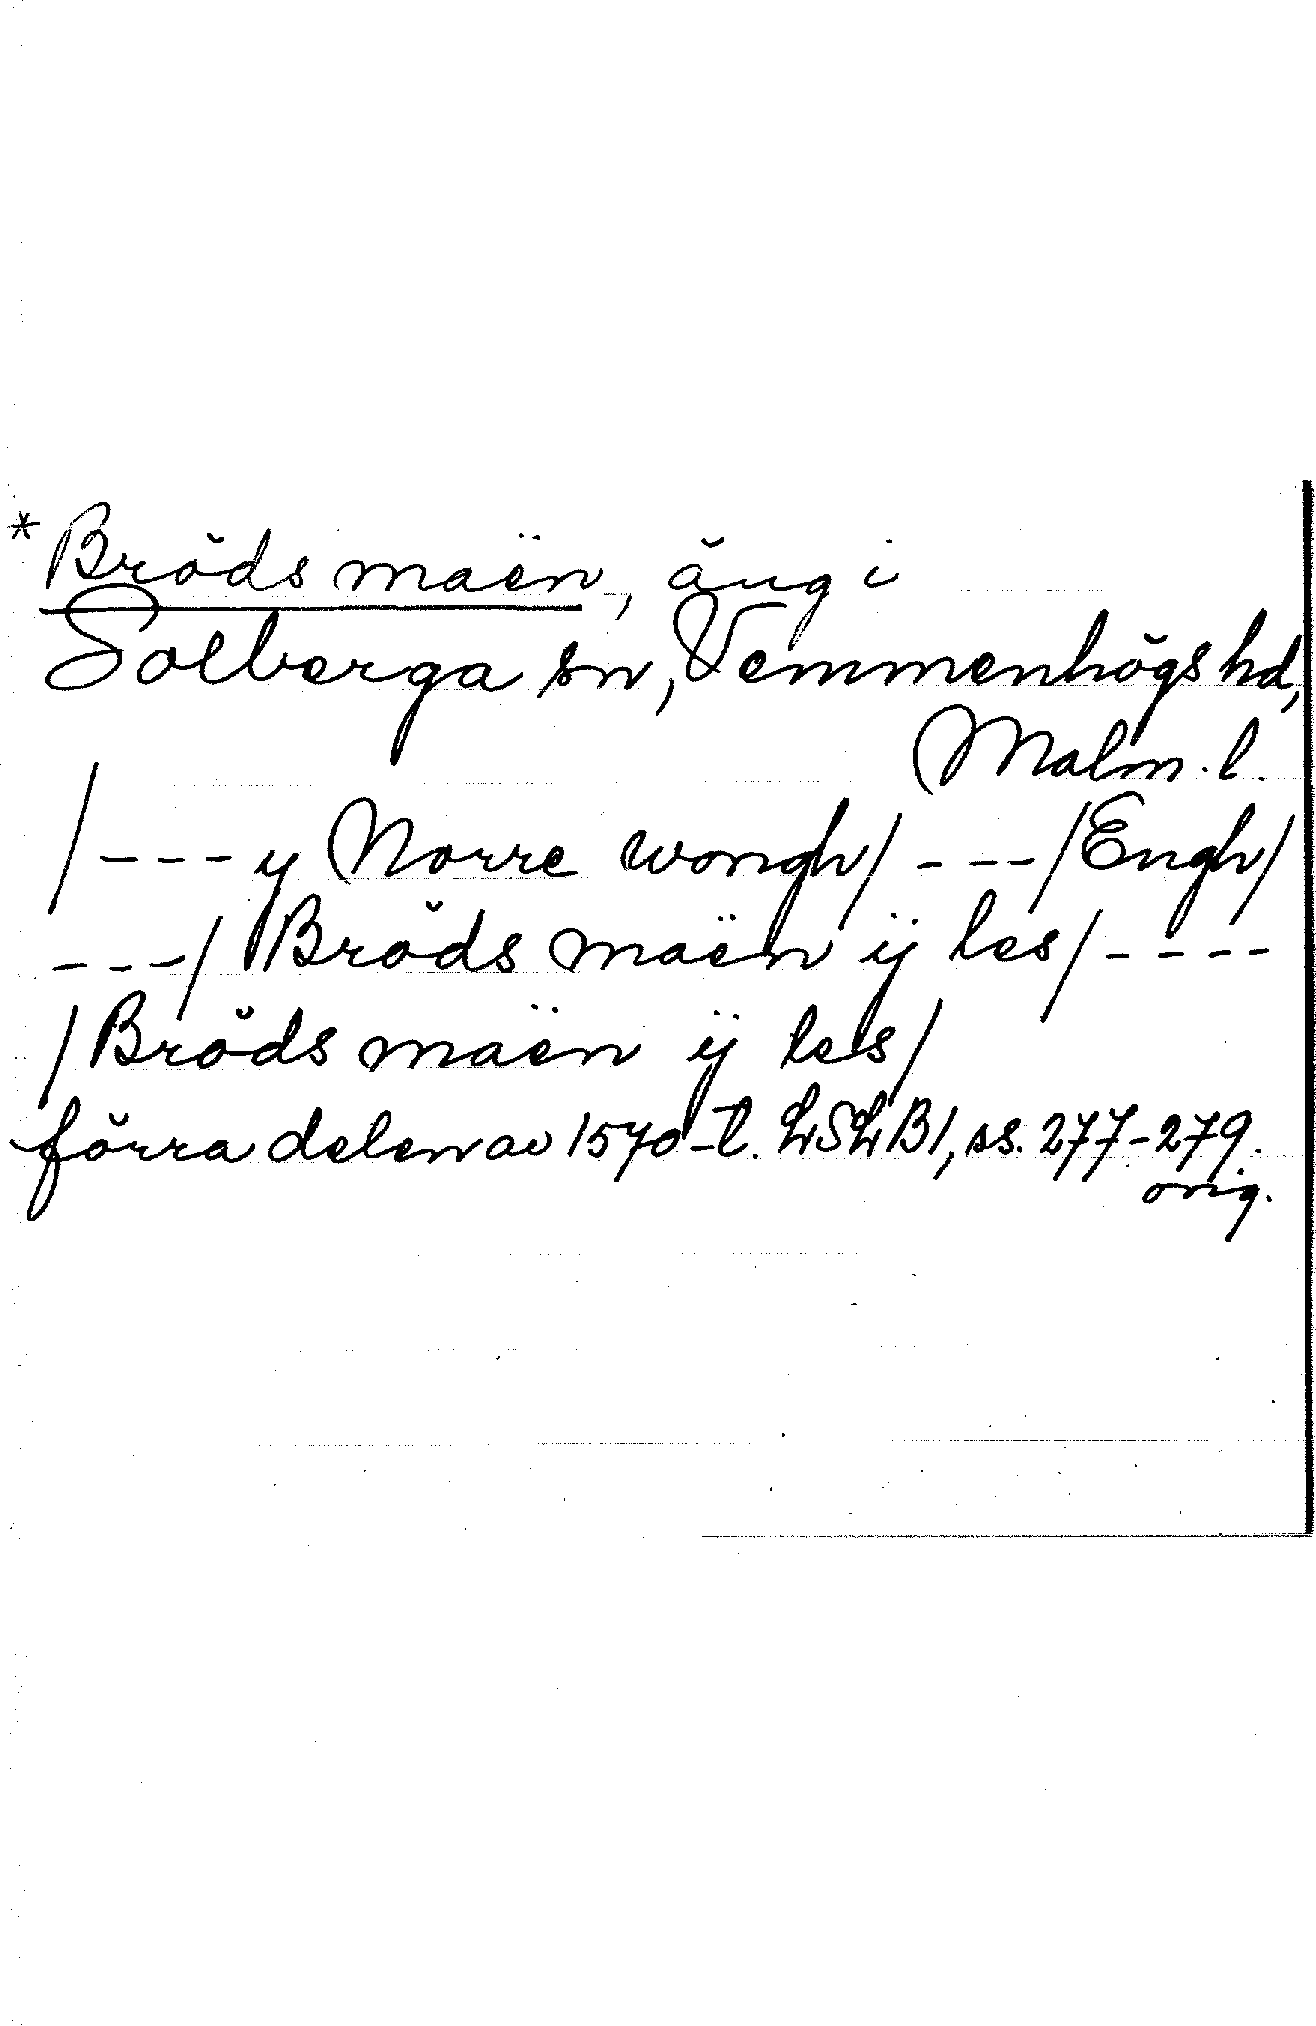 *Bröds maën, äng i
Solberga sn, Vemmenhögs hd,
Malm. l.
/---y Norre wongh/ ---/Engh/
---/ Bröds maën ÿ les/----
/Bröds maën ÿ les/
förra delen av 1570-t. LSLB1, ss. 277-279.
orig.